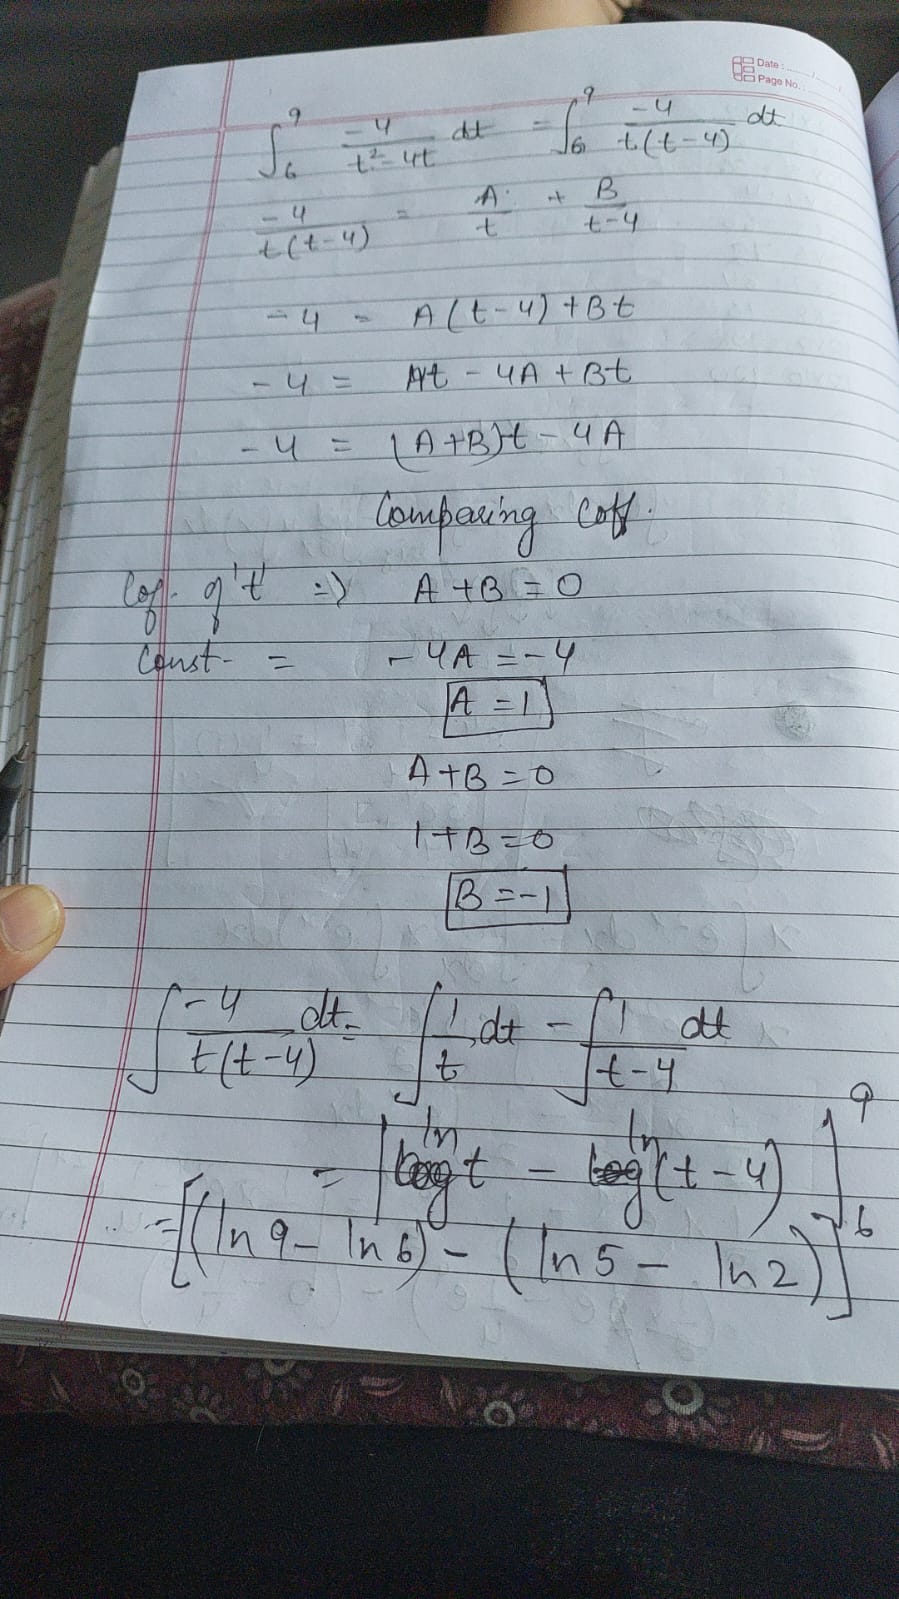 Date : ......../......
Page No. :
∫₆⁹ -4/(t²-4t) dt = ∫₆⁹ -4/(t(t-4)) dt
-4/(t(t-4)) = A/t + B/(t-4)
-4 = A(t-4) + Bt
-4 = At - 4A + Bt
-4 = (A+B)t - 4A
Comparing Coff.
Cof. of 't' => A + B = 0
Const- = -4A = -4
A = 1
A + B = 0
1 + B = 0
B = -1
∫ -4/(t(t-4)) dt = ∫ 1/t dt - ∫ 1/(t-4) dt
= [ln t - ln(t-4)]₆⁹
= [(ln 9 - ln 6) - (ln 5 - ln 2)]